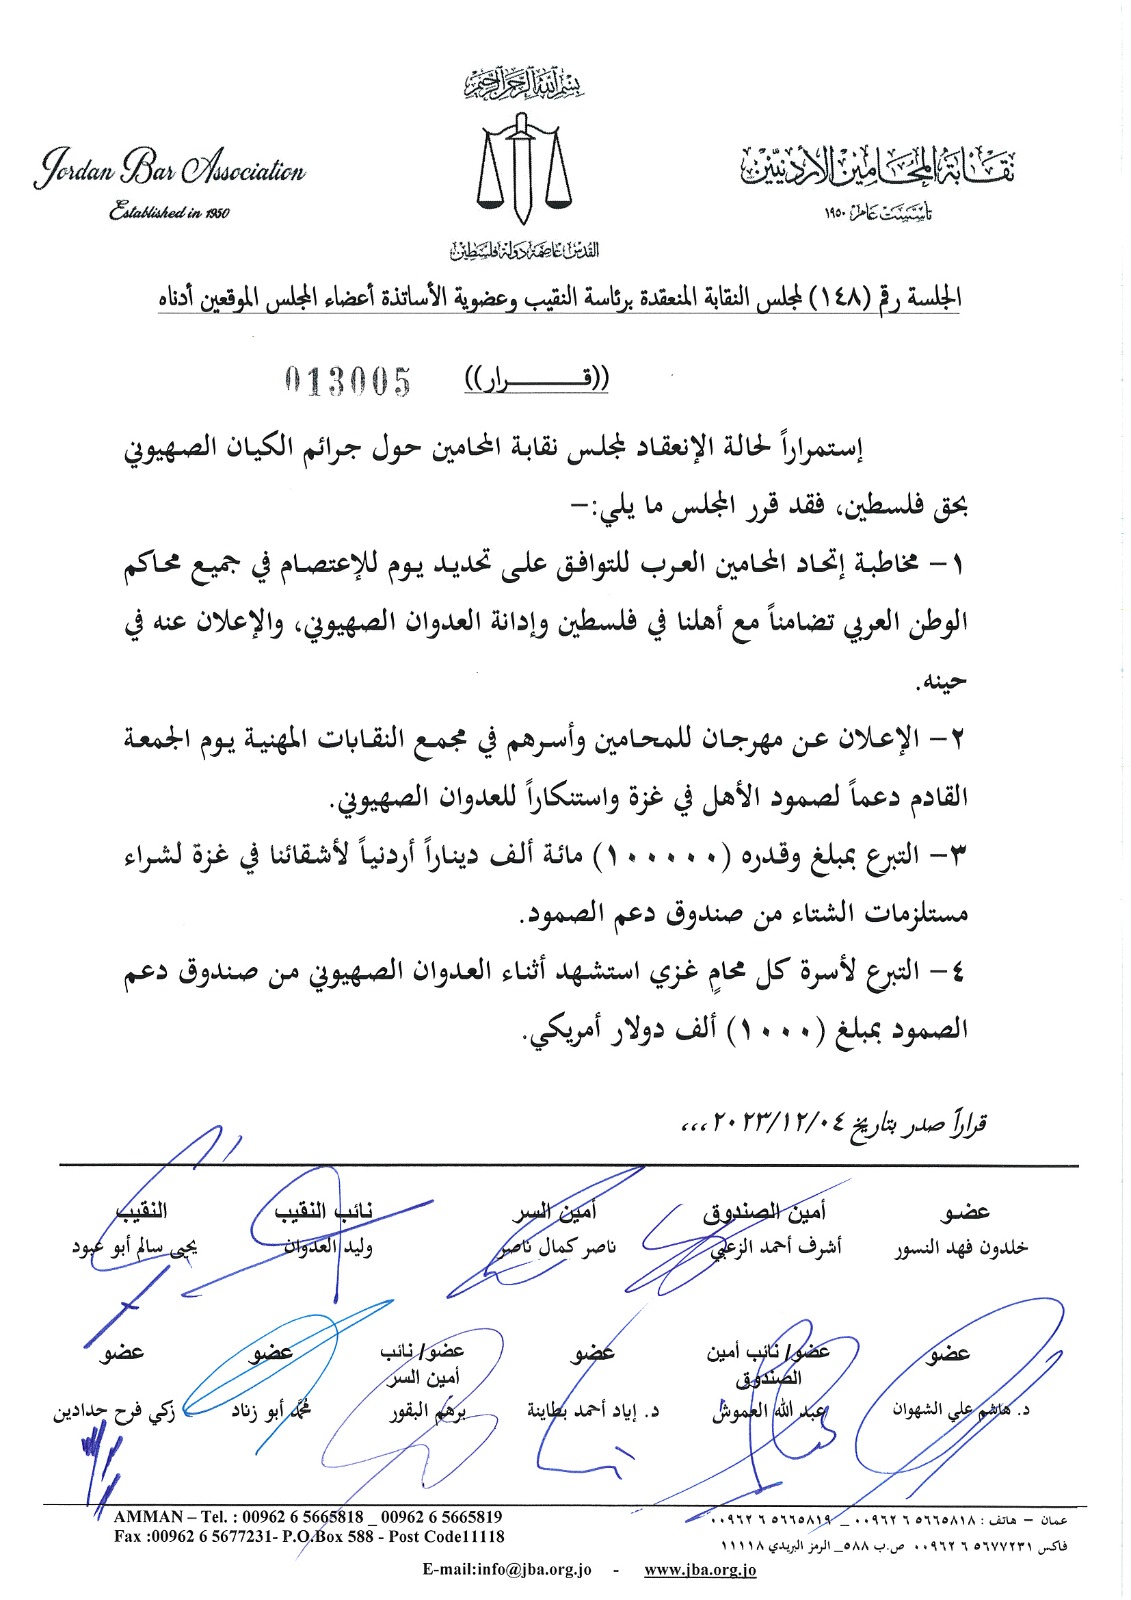 بسم الله الرحمن الرحيم
Jordan Bar Association
Established in 1950
نقابة المحامين الأردنيين
تأسست عام ١٩٥٠
القدس عاصمة دولة فلسطين
الجلسة رقم (١٤٨) لمجلس النقابة المنعقدة برئاسة النقيب وعضوية الأساتذة أعضاء المجلس الموقعين أدناه
((قــــــــرار))
013005
إستمراراً لحالة الإنعقاد لمجلس نقابة المحامين حول جرائم الكيان الصهيوني
بحق فلسطين، فقد قرر المجلس ما يلي:–
١– مخاطبة إتحاد المحامين العرب للتوافق على تحديد يوم للإعتصام في جميع محاكم
الوطن العربي تضامناً مع أهلنا في فلسطين وإدانة العدوان الصهيوني، والإعلان عنه في
حينه.
٢– الإعلان عن مهرجان للمحامين وأسرهم في مجمع النقابات المهنية يوم الجمعة
القادم دعماً لصمود الأهل في غزة واستنكاراً للعدوان الصهيوني.
٣– التبرع بمبلغ وقدره (١٠٠٠٠٠) مائة ألف ديناراً أردنياً لأشقائنا في غزة لشراء
مستلزمات الشتاء من صندوق دعم الصمود.
٤– التبرع لأسرة كل محامٍ غزي استشهد أثناء العدوان الصهيوني من صندوق دعم
الصمود بمبلغ (١٠٠٠) ألف دولار أمريكي.
قراراً صدر بتاريخ ٢٠٢٣/١٢/٠٤،،،
عضو أمين الصندوق أمين السر نائب النقيب النقيب
خلدون فهد النسور أشرف أحمد الزعبي ناصر كمال ناصر وليد العدوان يحيى سالم أبو عبود
عضو عضو/ نائب أمين عضو عضو/ نائب عضو عضو
الصندوق أمين السر
د. هاشم علي الشهوان عبد الله العموش د. إياد أحمد بطاينة برهم البقور محمد أبو زناد زكي فرح حدادين
AMMAN – Tel. : 00962 6 5665818 _ 00962 6 5665819
عمان – هاتف : ٥٦٦٥٨١٨ ٦ ٠٠٩٦٢ _ ٥٦٦٥٨١٩ ٦ ٠٠٩٦٢
Fax :00962 6 5677231- P.O.Box 588 - Post Code11118
فاكس ٥٦٧٧٢٣١ ٦ ٠٠٩٦٢ ص.ب ٥٨٨_ الرمز البريدي ١١١١٨
E-mail:info@jba.org.jo - www.jba.org.jo